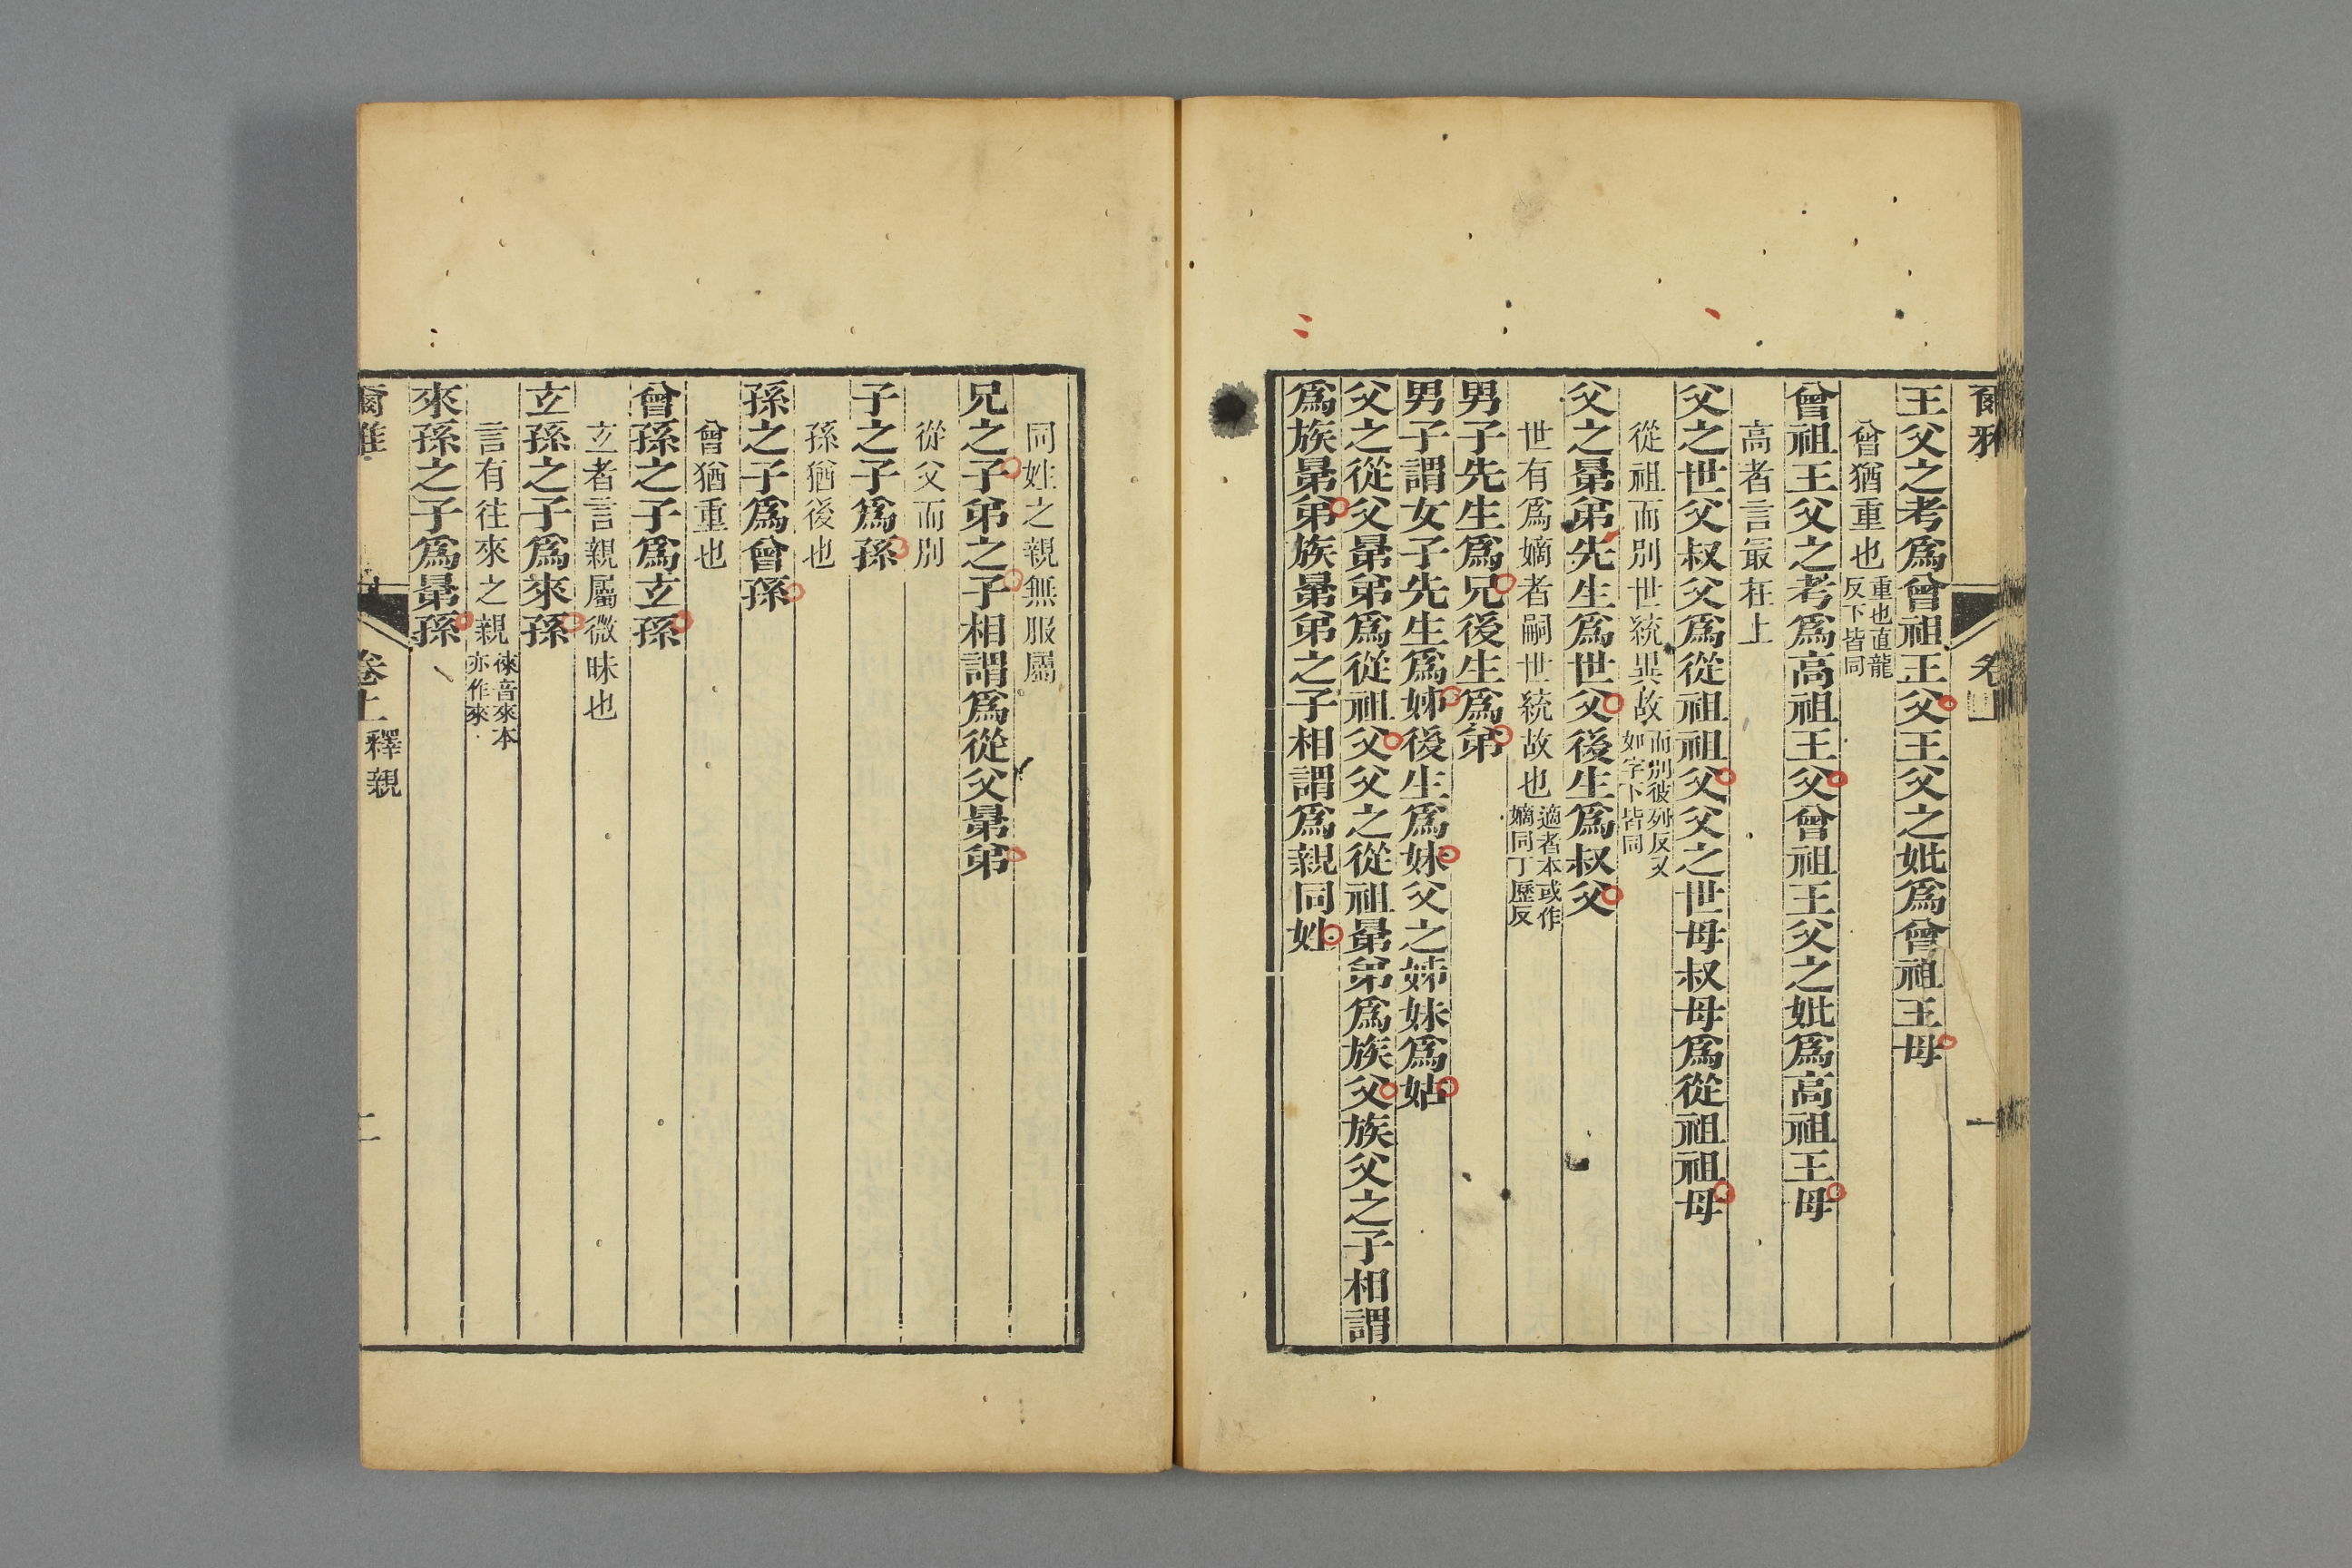 爾雅
王父之考爲曾祖王父王父之妣爲曾祖王母
曾猶重也重也直龍反下皆同
曾祖王父之考爲高祖王父曾祖王父之妣爲高祖王母
高者言最在上
父之世父叔父爲從祖祖父父之世母叔母爲從祖祖母
從祖而別世統異故而別彼列反又如字下皆同
父之晜弟先生爲世父後生爲叔父
世有爲嫡者嗣世統故也適者本或作嫡同丁歷反
男子先生爲兄後生爲弟
男子謂女子先生爲姊後生爲妹父之姊妹爲姑
父之從父晜弟爲從祖父父之從祖晜弟爲族父族父之子相謂
爲族晜弟族晜弟之子相謂爲親同姓
同姓之親無服屬
兄之子弟之子相謂爲從父晜弟
從父而別
子之子爲孫
孫猶後也
孫之子爲曾孫
曾猶重也
曾孫之子爲玄孫
玄者言親屬微昧也
玄孫之子爲來孫
言有往來之親徠音來本亦作來
來孫之子爲晜孫
爾雅 卷上 釋親 二